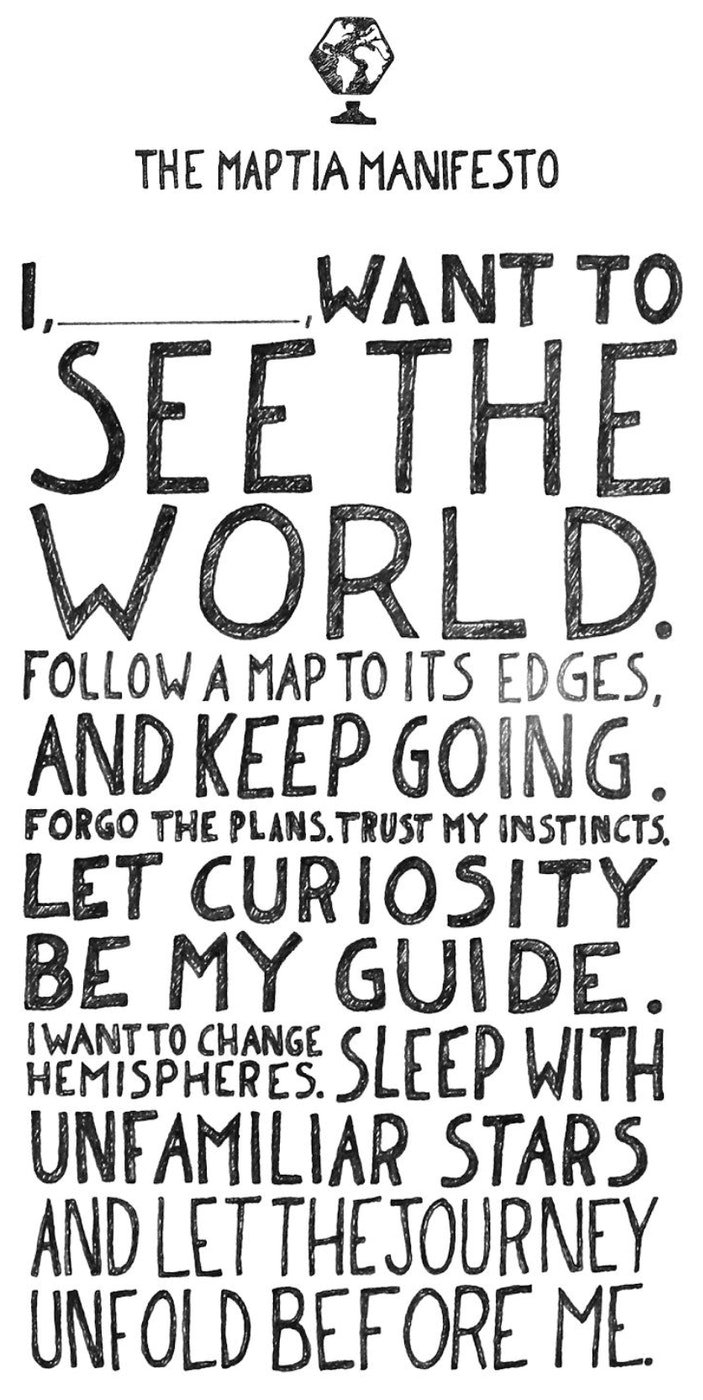 THE MAPTIA MANIFESTO
I,____________, WANT TO
SEE THE
WORLD.
FOLLOW A MAP TO ITS EDGES,
AND KEEP GOING.
FORGO THE PLANS. TRUST MY INSTINCTS.
LET CURIOSITY
BE MY GUIDE.
I WANT TO CHANGE
HEMISPHERES. SLEEP WITH
UNFAMILIAR STARS
AND LET THE JOURNEY
UNFOLD BEFORE ME.